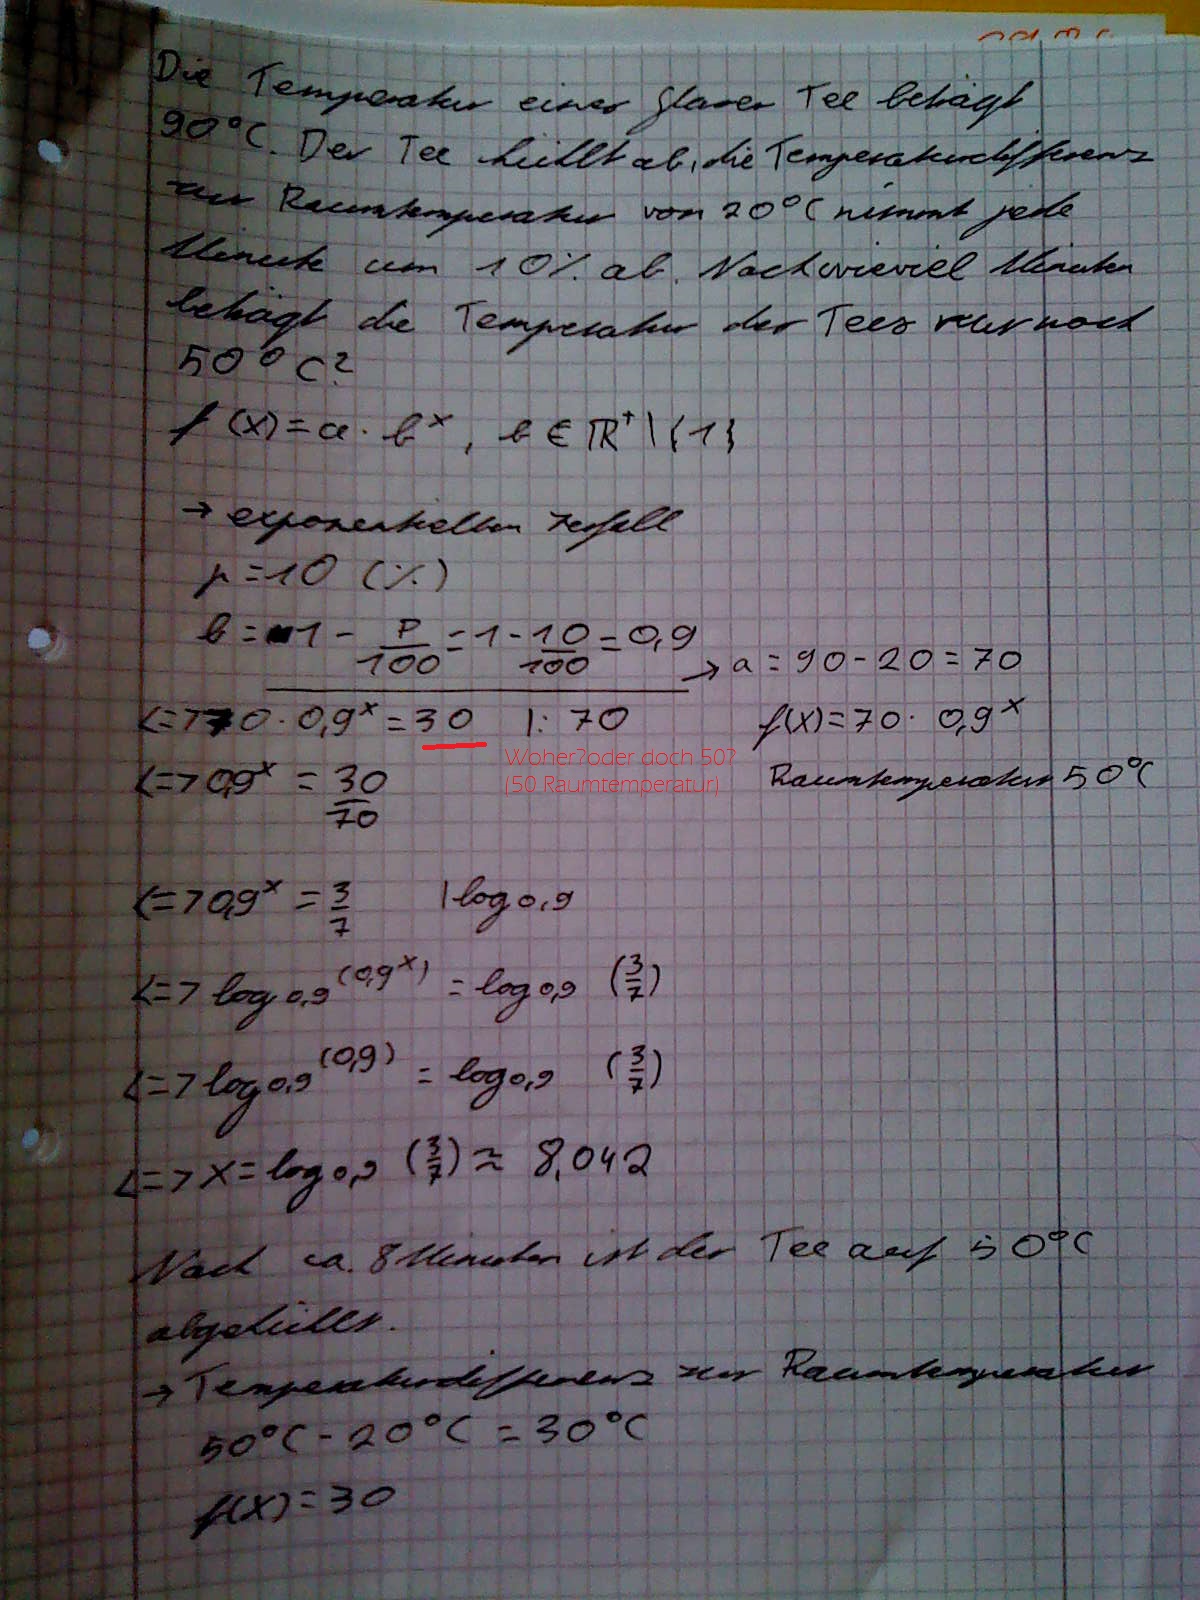 Die Temperatur eines Glases Tee beträgt
90°C. Der Tee kühlt ab, die Temperaturdifferenz
zur Raumtemperatur von 20°C nimmt jede
Minute um 10% ab. Nach wieviel Minuten
beträgt die Temperatur des Tees nur noch
50°C?
f(x)=a·b^x, b∈ℝ⁺\{1}
→ exponentiellen Zerfall
p=10 (%)
b=1-P/100=1-10/100=0,9
→ a=90-20=70
<=>70·0,9^x=30 |:70
f(x)=70·0,9^x
Woher?oder doch 50?
(50 Raumtemperatur)
<=>0,9^x=30/70
Raumtemperatur 50°C
<=>0,9^x=3/7 |log0,9
<=>log0,9^(0,9^x)=log0,9 (3/7)
<=>log0,9^(0,9)=log0,9 (3/7)
<=>x=log0,9 (3/7)≈8,042
Nach ca. 8 Minuten ist der Tee auf 50°C
abgekühlt.
→ Temperaturdifferenz zur Raumtemperatur
50°C-20°C=30°C
f(x)=30